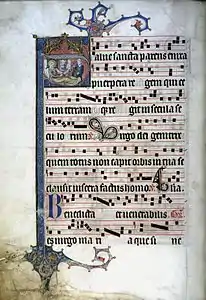 Salue sancta parens enixa
puerpera re gem qui ce
lum terram que regit in secula se
culo rum Virgo dei genitrix
quem totus non capit orbis in tua se
clausit viscera factus homo
Benedicta et venerabilis
es virgo mari a que si ne